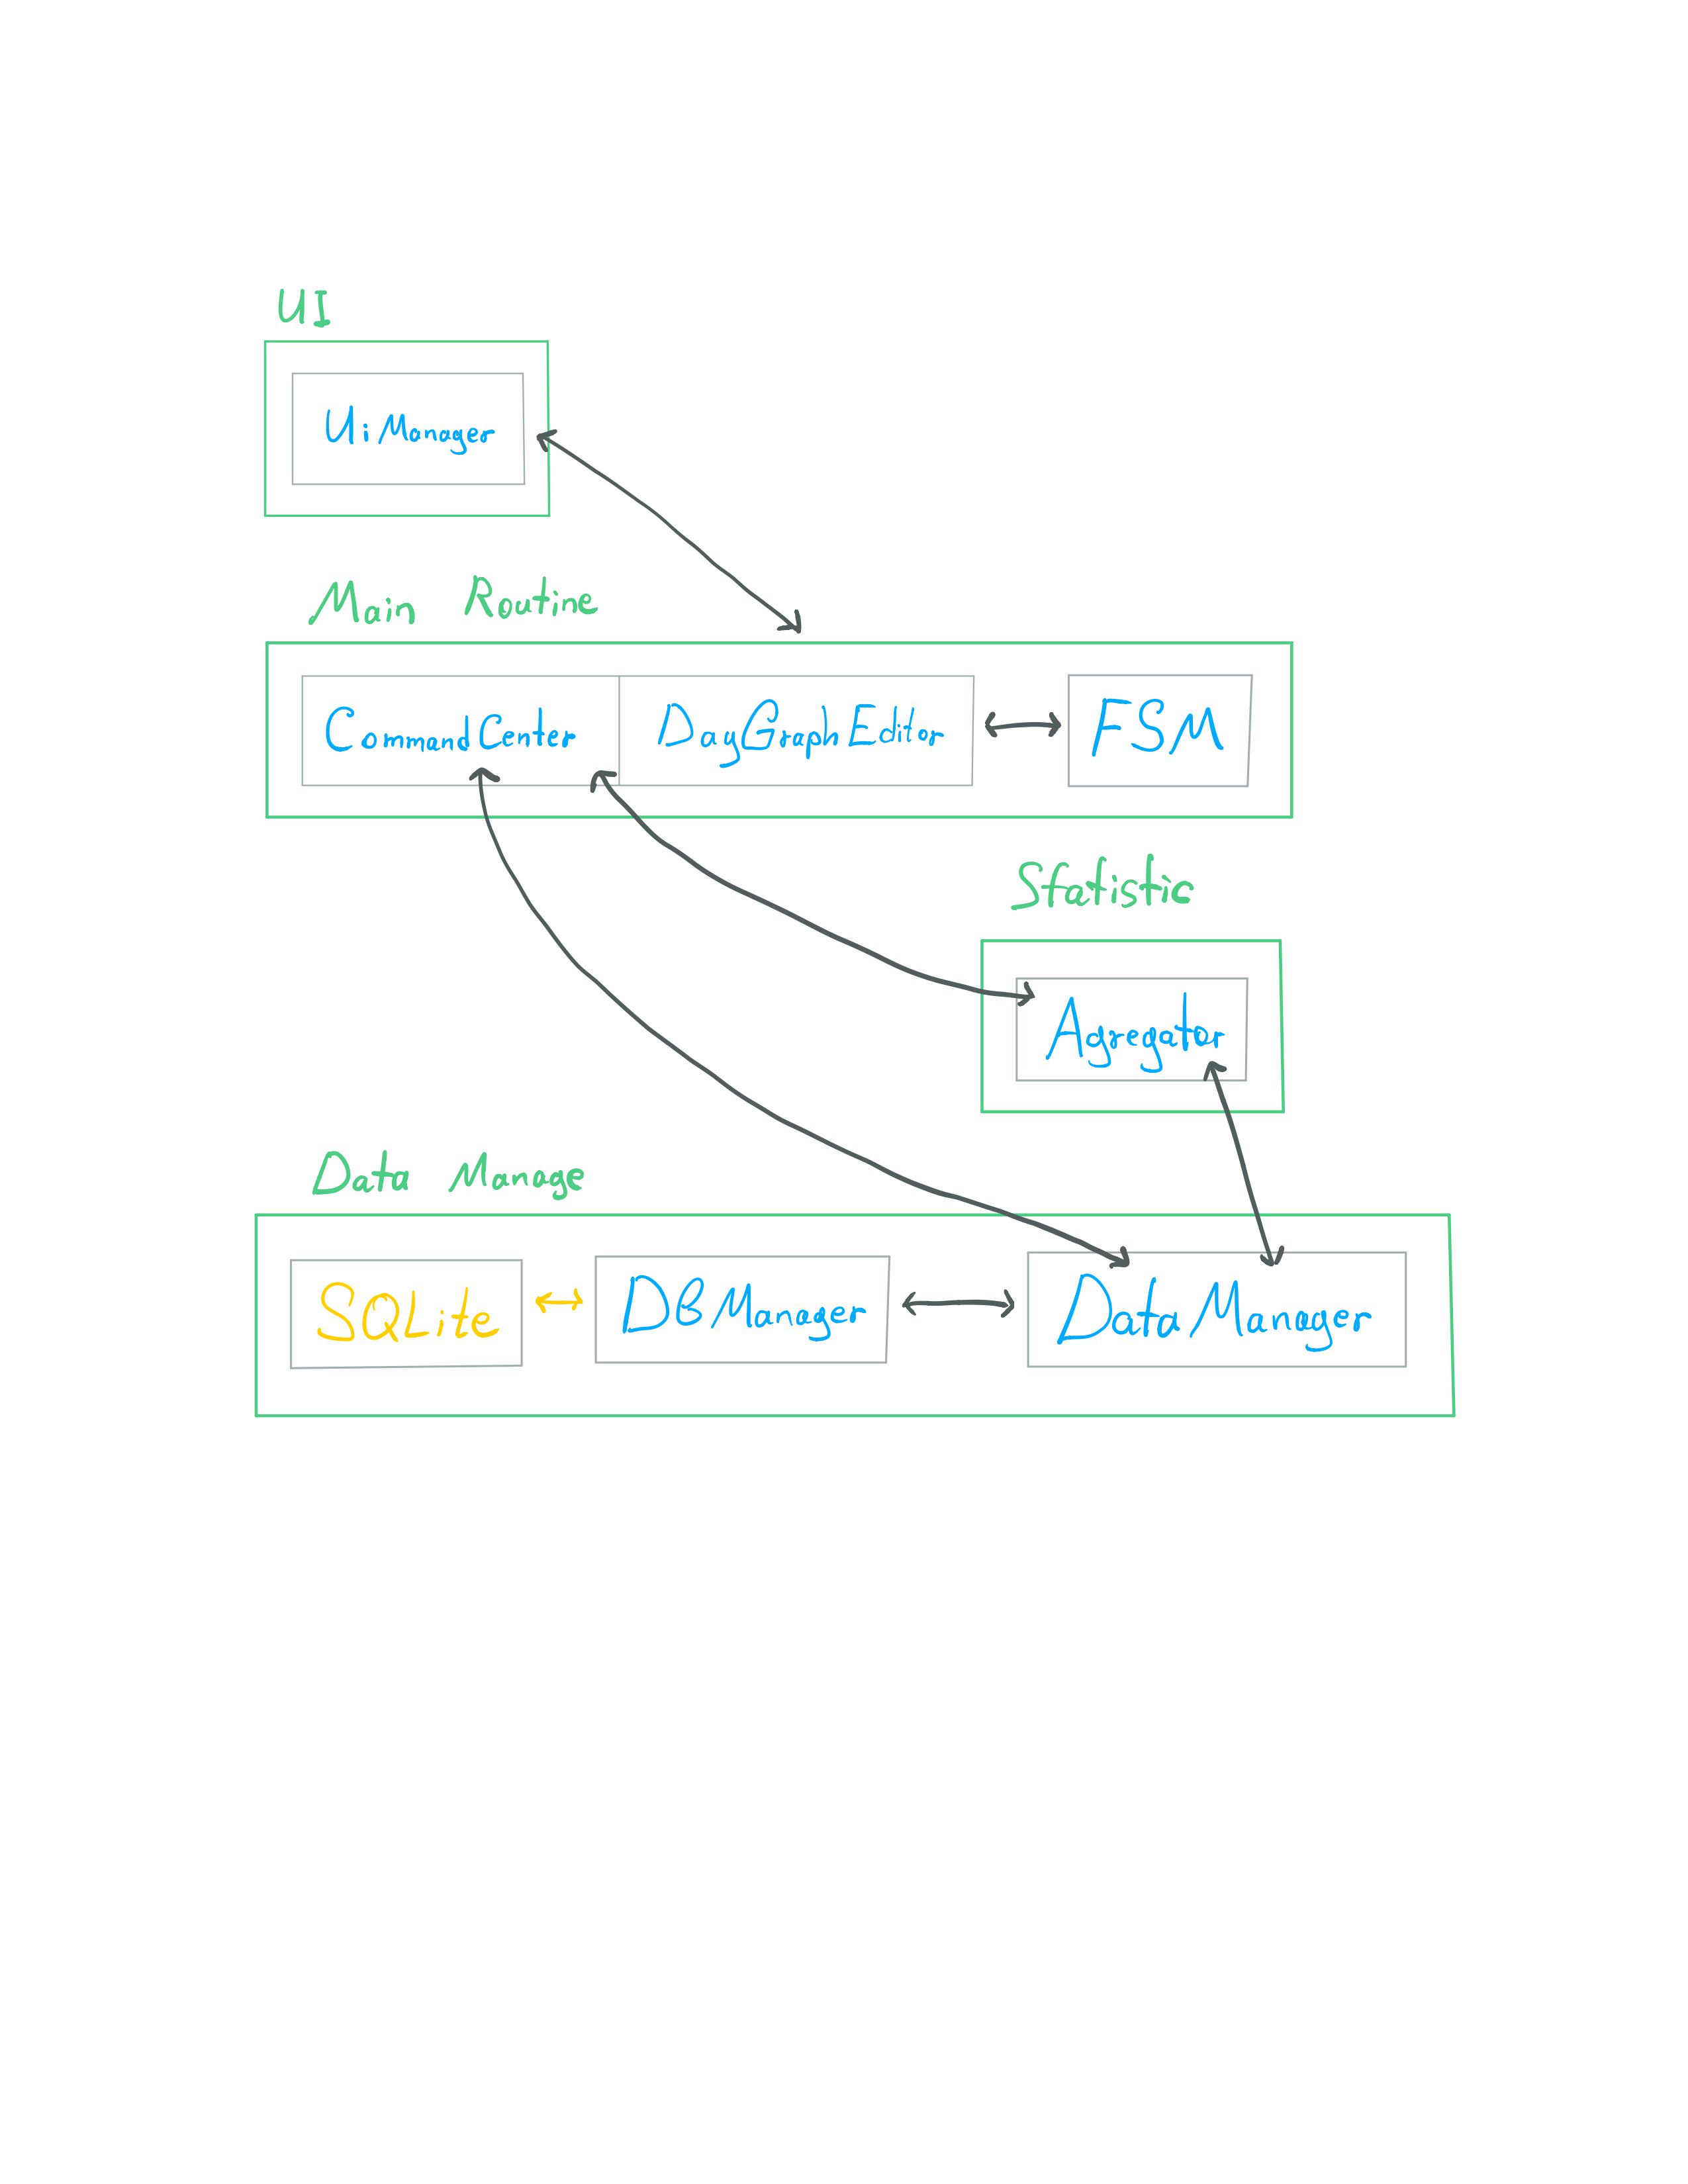 UI
UiManager
Main Routine
CommandCenter DayGraphEditor FSM
Statistic
Agregator
Data Manage
SQLite DBManager DataManager